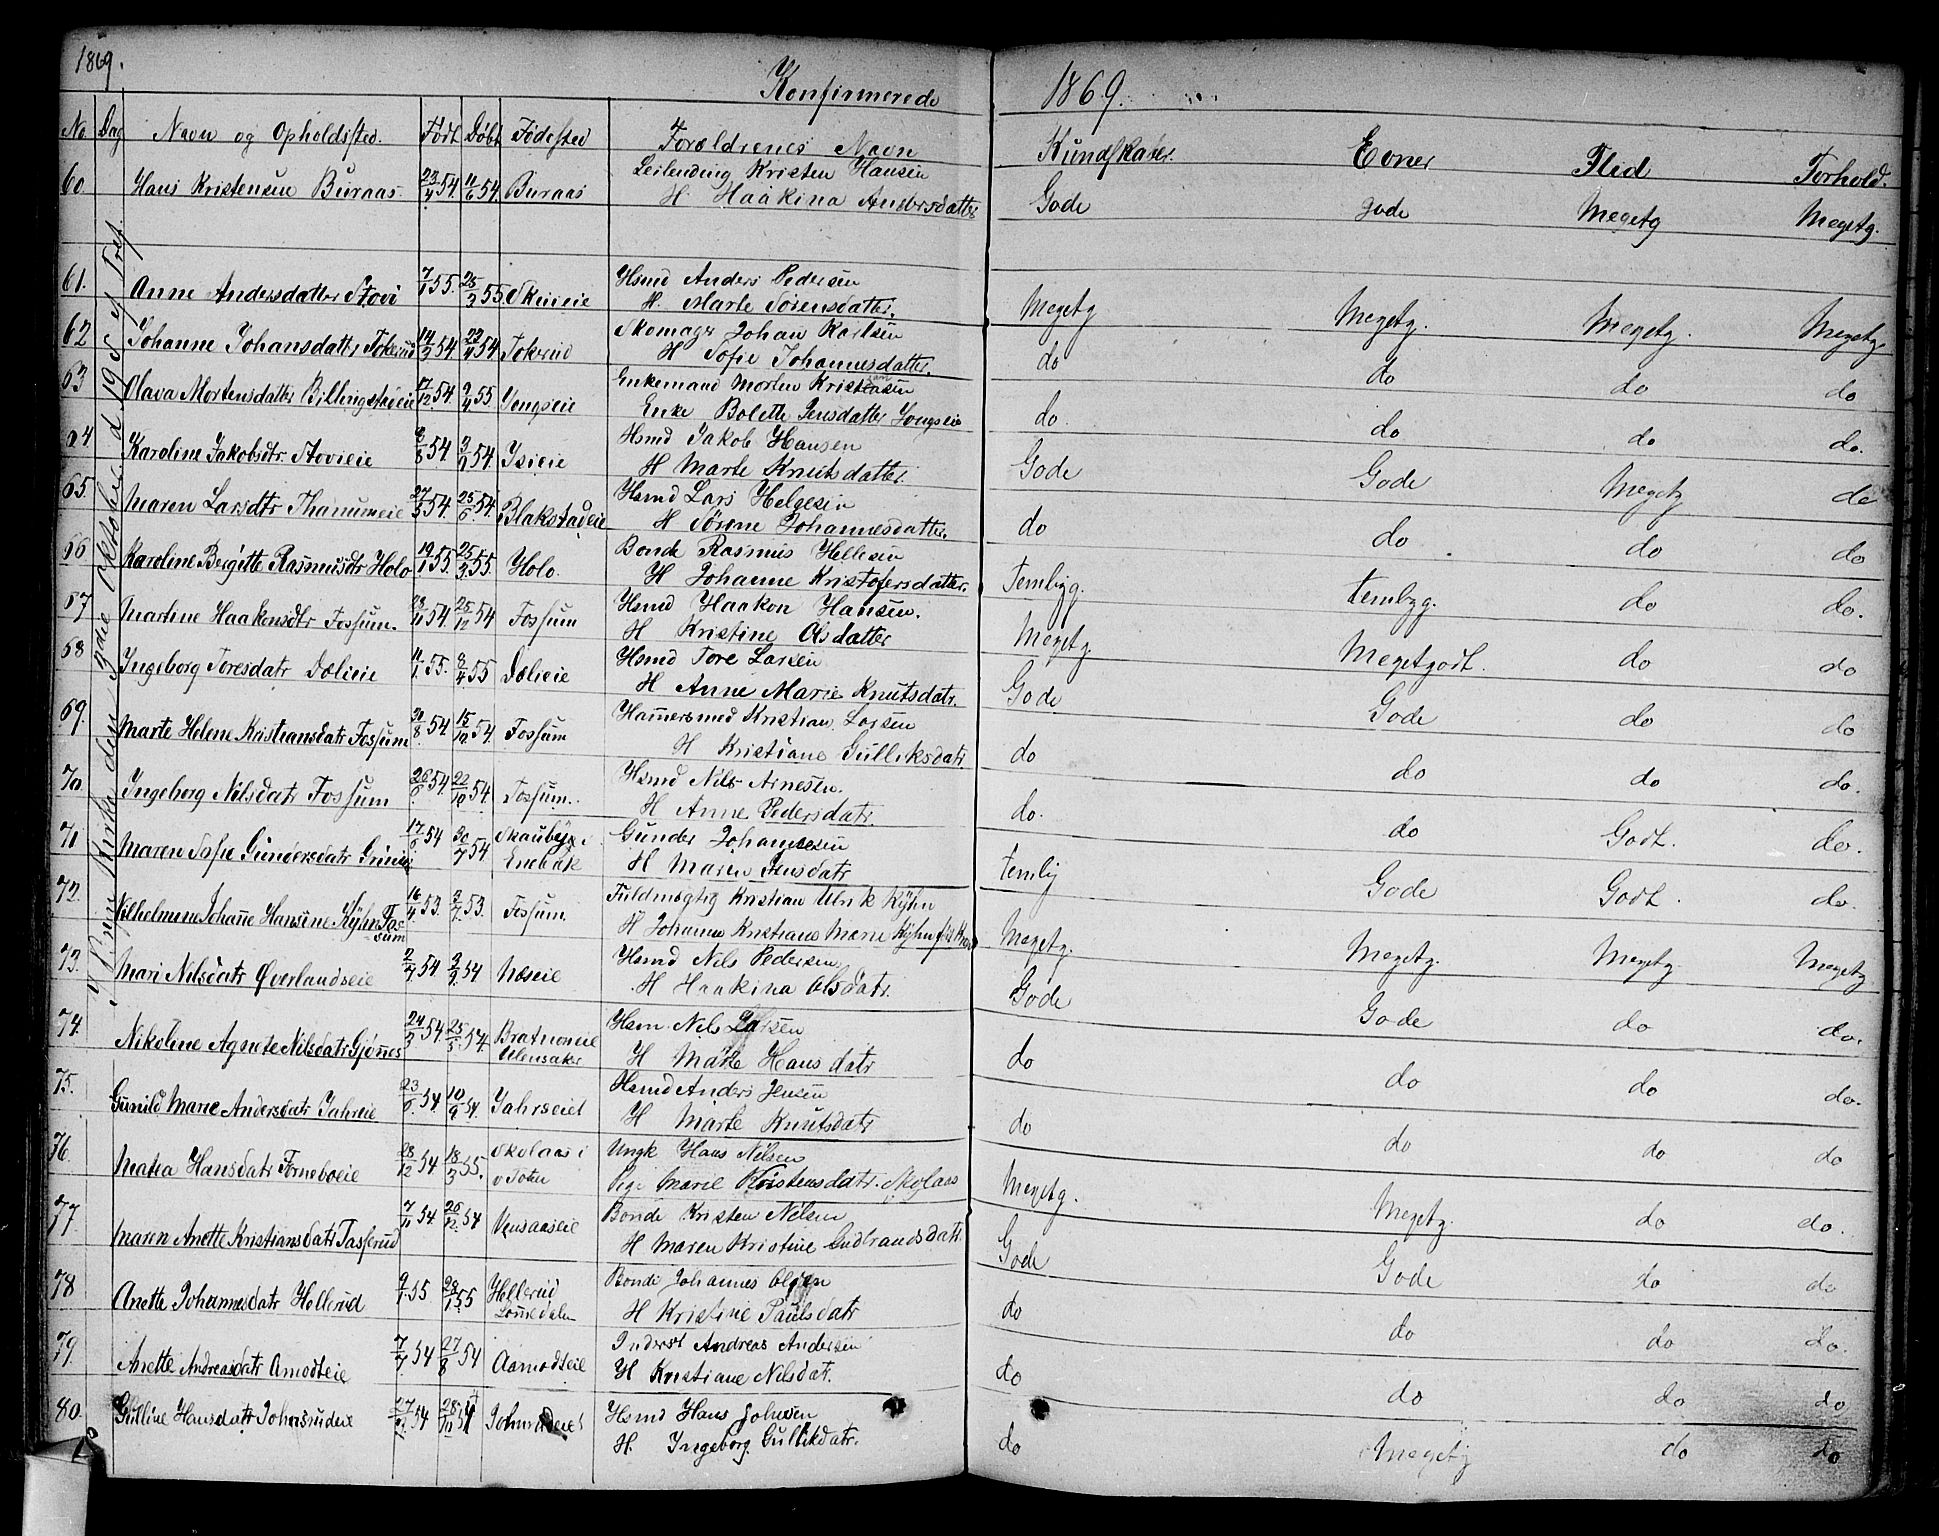 1869.
Konfirmerede 1869.
No Dag Navn og Opholdssted. Født Døbt Fødested Forældrenes Navn Kundskaber. Evner Flid Forhold.
60. Hans Kristensen Buraas. 23/4 54. 11/6 54. Buraas Leilending Kristen Hansen Gode gode Megetg Megetg.
H. Haakina Andersdatter
61. Anne Andersdatter Stovi 7/1 55. 25/3 55. Skuieie Hsmd Anders Pedersen Megetg Megetg. Megetg. Megetg.
H. Marte Sørensdatter.
62 Johanne Johansdattr Tokerud 14/2 54. 22/4 54 Tokerud Skomager Johan Karlsen do do do do
H Sofie Johannesdatter.
63 Olava Mortensdatter Billingstadeie 17/12 54. 9/4 55. Yongseie Enkemand Morten Kristensen do. do do do.
Enke Bolette Jensdatter Yongseie
64 Karoline Jakobsdtr. Stovieie 8/8 54 3/9 54. Isieie Hsmd Jakob Hansen Gode Gode Megetg do
H Marte Knutsdatter.
65. Maren Larsdtr Thanumeie 27/3 54. 25/6 54. Blakstadeie Hsmd Lars Helgesen do do do do
H Sørine Johannesdatter.
66 Karoline Birgitte Rasmusdtr Holo 19/1 55. 25/3 55. Holo. Bonde Rasmus Hellesen Temlig. temlig. do do.
H Johanne Kristofersdatter.
67 Martine Haakensdtr Fossum. 23/11 54. 25/12 54 Fossum Hsmd Haakon Hansen. Megetg. Megetgodt. do do
H Kristine Olsdatter
68 Ingeborg Toresdatr Dælieie 11/1 55. 8/4 55 Dælieie Hsmd Tore Larsen Gode Gode do do
H Anne Marie Knutsdatr.
69. Marte Helene Kristiansdatr Fossum 30/8 54 15/10 54. Fossum Hamersmed Kristian Larsen do do do do.
H Kristiane Gulliksdatr.
70. Ingeborg Nilsdatr Fossum 26/6 54. 22/10 54. Fossum. Hsmd Nils Arnesen. do. do Godt. do.
H Anne Pedersdatr.
71 Maren Sofie Gundersdatr Grinieie 17/6 54 30/7 54 Skaubyg i Gunder Johannesen temlig Gode Godt. do.
Enebak H Maren Jensdatr
72. Vilhelmine Johane Hansine Kyhn Fossum 16/4 53. 3/7 53. Fossum. Fuldmægtig Kristian Ulrik Kyhn Megetg. Megetg. Megetg. Megetg
H Johanne Kristiane Marie Kyhn
73. Mari Nilsdatr Øverlandseie 2/7 54 3/9 54 Næseie Hsmd Nils Pedersen Gode Gode do do.
H Haakina Olsdatr.
74. Nikoline Agnete Nilsdatr Gjønnes 24/3 54. 25/5 54. Bratnoneie Hsm. Nils Larsen do do do do.
Ulensaker H Marte Hansdatr
75. Gunild Marie Andersdatr Jahreie 23/6 54 10/9 54. Jahrseiet Hsmd Anders Jensen do do do do
H Marte Knutsdatr
76. Matea Hansdatr Forneboeie 28/12 54 18/3 55. Skolaas i Ungk Hans Nilsen Megetg. Megetg. do do.
v Toten Pige Marie Kristensdatr. Skolaas
77 Maren Anette Kristiansdatr Tasserud 7/11 54. 26/12 54 Vensaaseie Bonde Kristen Nilsen Gode Gode do do
H Maren Kristine Gudbrandsdatr.
78 Anette Johannesdatr Hellerud 9/1 55. 28/1 55 Hellerud Bonde Johannes Olsen do do do do.
Lomedalen H Kristine Paulsdatr
79. Anette Andreasdatr Amodteie 7/7 54 27/8 54 Aamodteie Inderst Andreas Andersen do do do do
H Kristiane Nilsdatr.
80. Gulline Hansdatr Johnsrudeie 27/9 54 28/11 54 Johnsrudeiet Hsmd Hans Johnsen do Megetg do do
H. Ingeborg Gullikdatr.
i Bærum Kirke den 19de Oktober